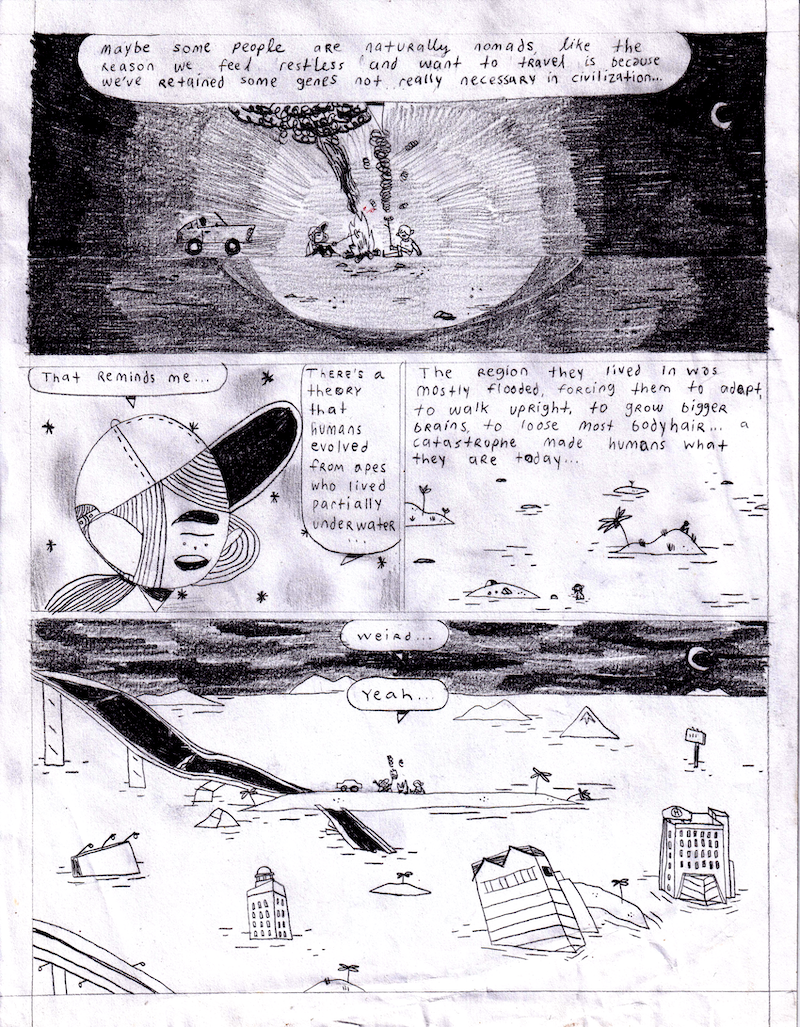 maybe some people are naturally nomads, like the
reason we feel restless and want to travel is because
we've retained some genes not really necessary in civilization...
That reminds me...
There's a
theory
that
humans
evolved
from apes
who lived
partially
underwater
...
The region they lived in was
mostly flooded, forcing them to adapt,
to walk upright, to grow bigger
brains, to loose most bodyhair... a
catastrophe made humans what
they are today...
weird...
Yeah...
H